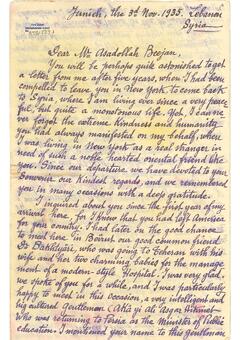 Junieh, the 3d Nov. 1935. Lebanon
Syria
Dear Mr. Asadollah Beejan,
You will be perhaps quite astonished to get
a letter from me after five years, when I had been
compelled to leave you in New York to come back
to Syria, where I am living ever since a very peace
ful, but quite a monotonous life. Yet I can ne
ver forget the extreme kindness and humanity
you had always manifested on my behalf, when
I was living in New York as a real stranger in
need of such a noble hearted oriental friend like
you. Since our departure, we have devoted to your
souvenir our kindest regards, and we remembered
you in many occasions with a deep gratitude.
I inquired about you since the first years of my
arrival here, for I knew that you had left America
for your country. I had later on the good chance
to meet here in Beirut our good common friend
Dr. Bakhtiari, who was going to Teheran with his
wife and her two charming babies for the manage
ment of a modern-style Hospital. I was very glad
we spoke of you for a while, and I was particularly
happy to meet in this occasion, a very intelligent and
big cultured gentleman (Aka yi Ali Asgar
who was returning to Persia as the Minister of Public
education. I mentioned your name to this gentleman